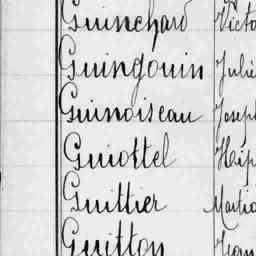 Guinchard Victo
Guingouin Julie
Guinoiseau Joseph
Guiottel Hip
Guittier Martia
Guitton Jean